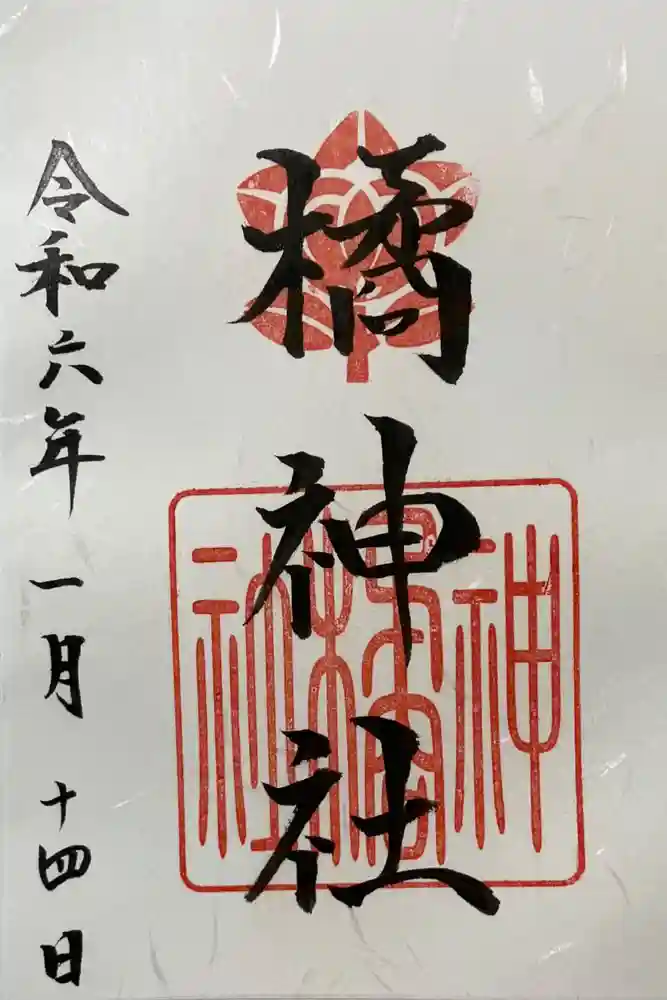 橘神社
令和六年 一月 十四日
社橘神